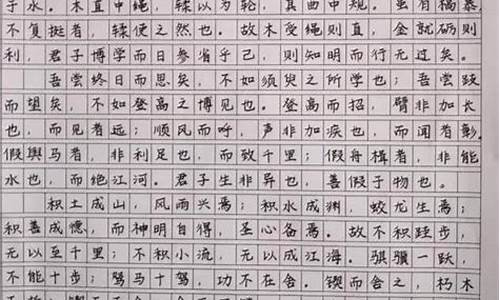 于水。木直中绳，輮以为轮，其曲中规。虽有槁暴，
不复挺者，輮使之然也。故木受绳则直，金就砺则
利，君子博学而日参省乎己，则知明而行无过矣。
吾尝终日而思矣，不如须臾之所学也；吾尝跂
而望矣，不如登高之博见也。登高而招，臂非加长
也，而见者远；顺风而呼，声非加疾也，而闻者彰。
假舆马者，非利足也，而致千里；假舟楫者，非能
水也，而绝江河。君子生非异也，善假于物也。
积土成山，风雨兴焉；积水成渊，蛟龙生焉；
积善成德，而神明自得，圣心备焉。故不积跬步，
无以至千里；不积小流，无以成江海。骐骥一跃，
不能十步；驽马十驾，功不在舍。锲而舍之，朽木